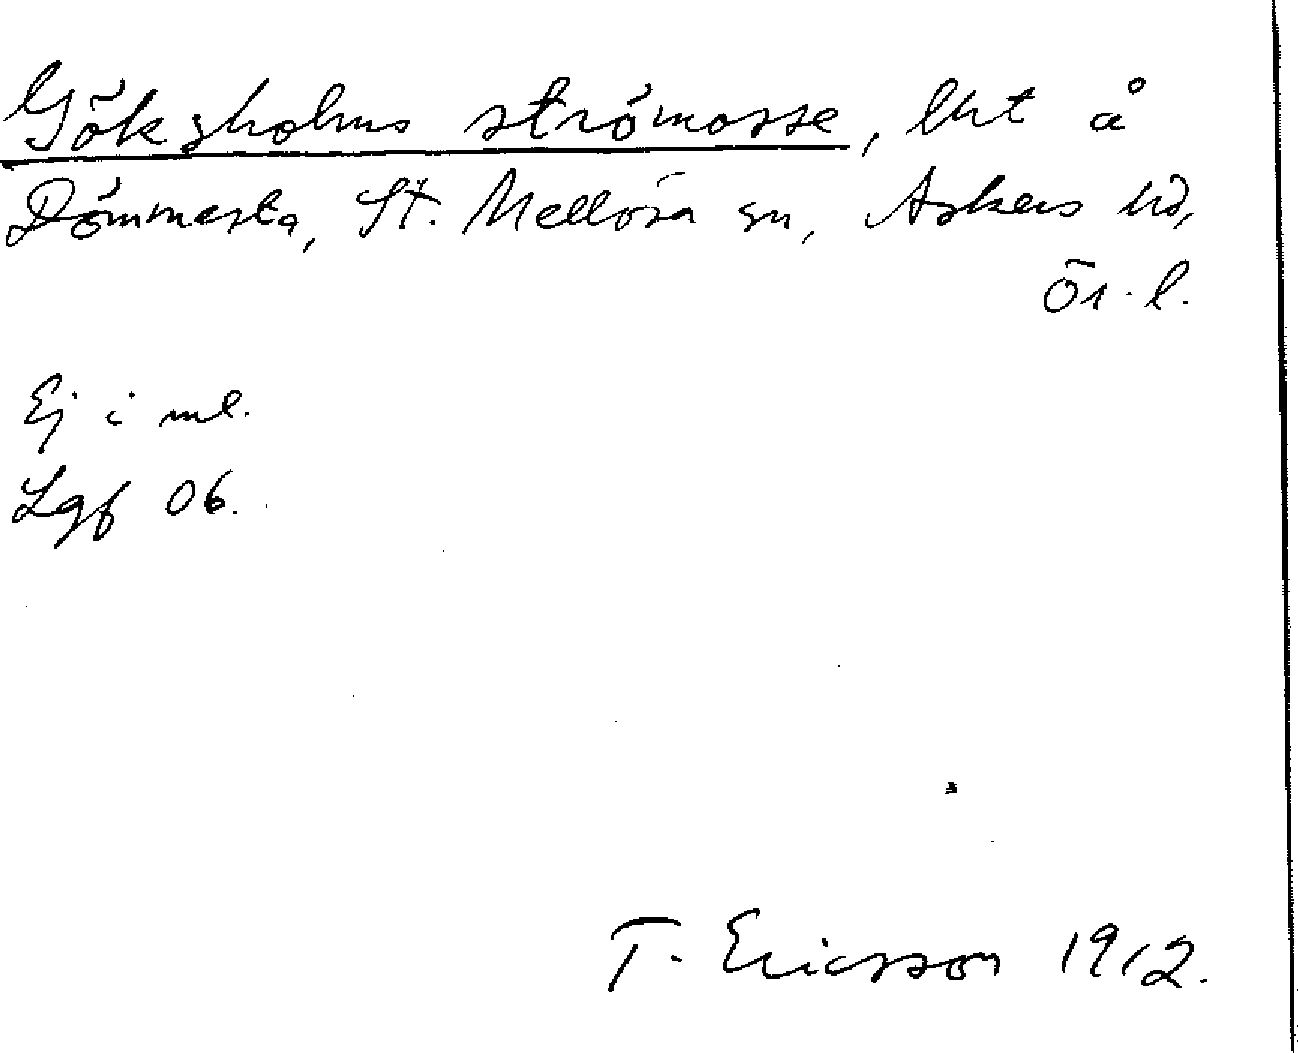 Göksholms strömosse, lht å
Dömmesta, St. Mellösa sn, Askers hd,
Ör. l.
Ej i ml.
Lgf 06.
T. Ericsson 1912.